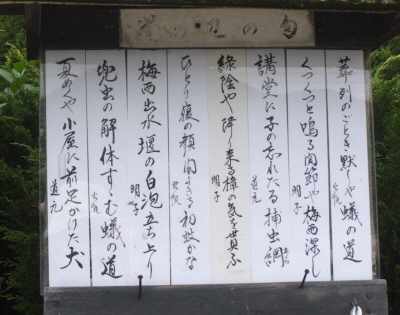 葬列のごとき黙しや蟻の道
くつくつと鳴る関節や梅雨深し
明子
講堂に子の忘れたる捕虫網
道元
緑陰や降り来る樟の気を浴ぶ
明子
ひとり寝の顔
梅雨出水堰の白泡立ち上り
明子
兜虫の解体すすむ蟻の道
夏めくや小屋に前足かけた犬
道元